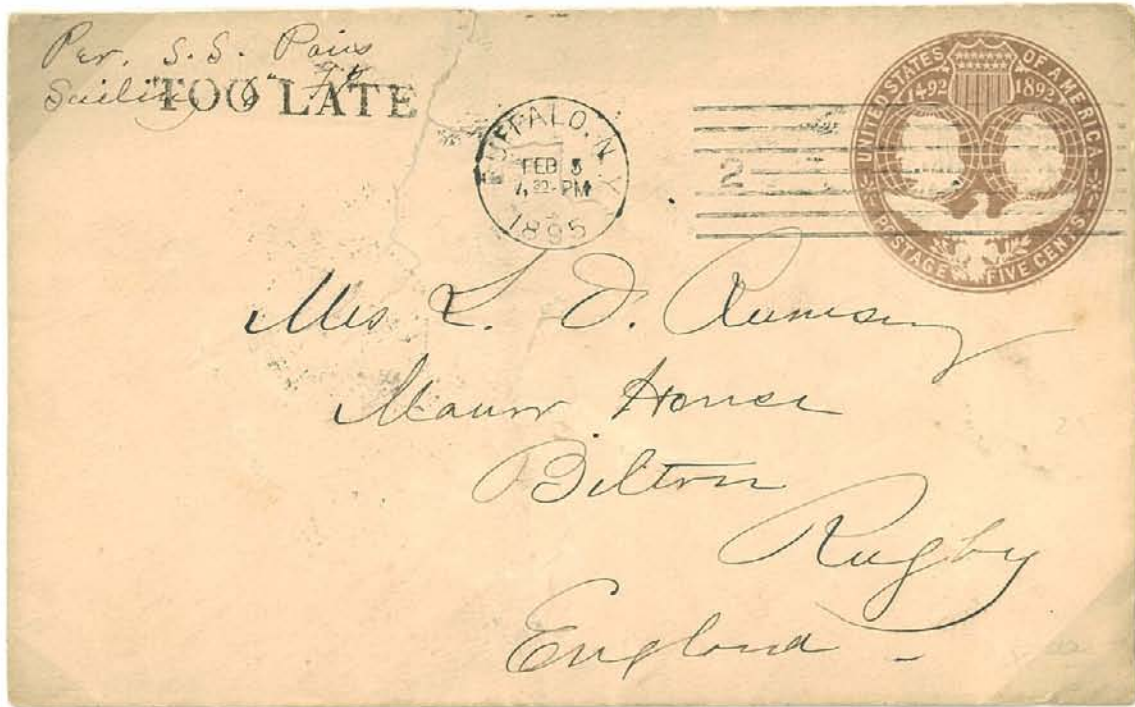 Per. S.S. Paris
Sailing 6" Feb
TOO LATE
BUFFALO, N.Y.
FEB 5
7:30-PM
1895
2
UNITED STATES OF AMERICA
1492 1892
POSTAGE FIVE CENTS
Mrs L. D. Rumsey
Manor House
Bilton
Rugby
England